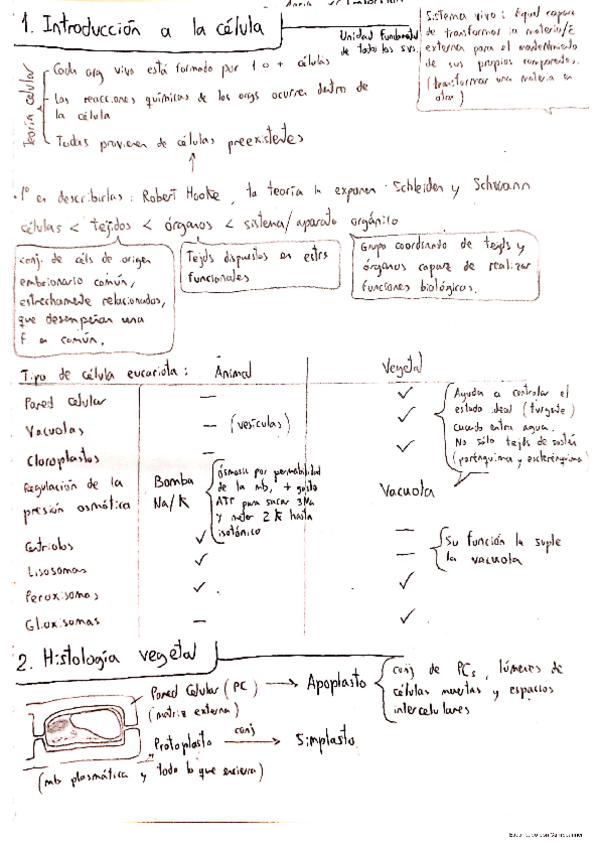 1. Introducción a la célula
Unidad Fundamental
de todos los svs.
Sistema vivo: Aquel capaz
de transformar la materia/E
externa para el mantenimiento
de sus propios componentes.
(transformar una materia en
otra)
Teoría celular
Cada org vivo está formado por 1 o + células
Las reacciones químicas de los orgs ocurren dentro de
la célula
Todas provienen de células preexistentes
· 1º en describirlas: Robert Hooke, la teoría la exponen Schleiden y Schwann
células < tejidos < órganos < sistema/aparato orgánico
conj. de céls de origen
embrionario común,
estrechamente relacionados,
que desempeñan una
f en común.
Tejds dispuestos en estrs
funcionales
Grupo coordinado de tejds y
órganos capaz de realizar
funciones biológicas.
Tipo de célula eucariota: Animal Vegetal
Pared celular — ✓
Vacuolas — (vesículas) ✓
Cloroplastos — ✓
Ayudan a controlar el
estado ideal (turgente)
cuando entra agua.
No sólo tejds de sostén
(parénquima y esclerénquima)
Regulación de la
presión osmótica
Bomba
Na/K
ósmosis por permeabilidad
de la mb, + gasto
ATP para sacar 3Na
y meter 2K hasta
isotónico
Vacuola
Centriolos ✓ —
Lisosomas ✓ —
Su función la suple
la vacuola
Peroxisomas ✓ ✓
Glioxisomas — ✓
2. Histología vegetal
Pared Celular (PC) → Apoplasto
(matriz externa)
conj de PCs, lúmenes de
células muertas y espacios
intercelulares
Protoplasto conj → Simplasto
(mb plasmática y todo lo que encierra)